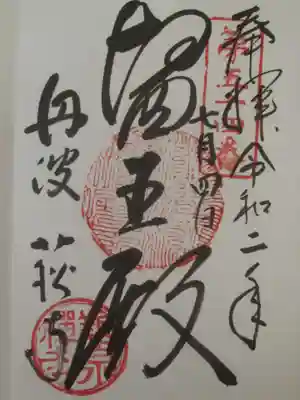 奉拝 令和二年
七月四日
醫王殿
丹波 萩寺